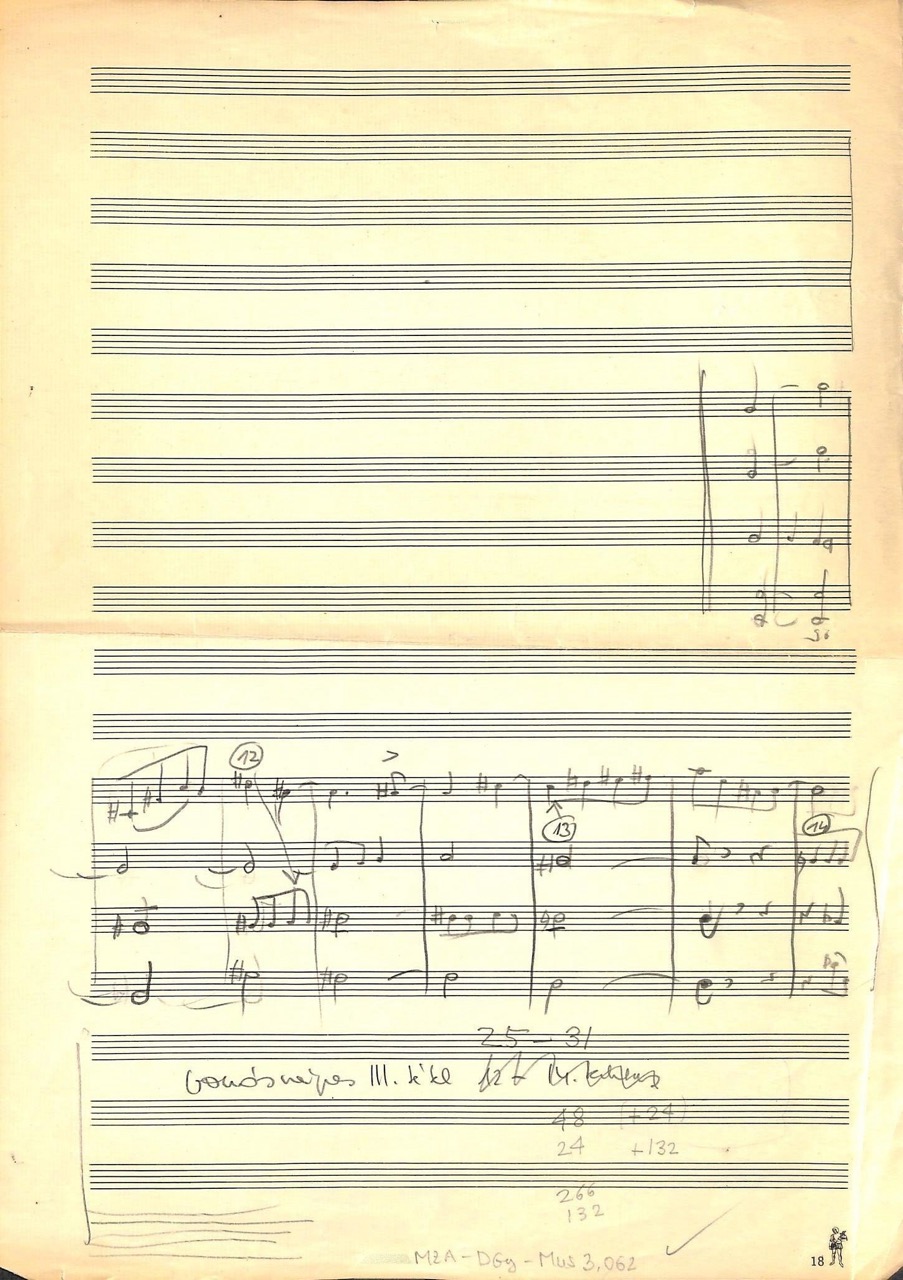 12
13
14
25 - 31
vonósnégyes III. tétel
48 (+24)
24 +132
266
132
MZA - DGy - Mus 3,062
18